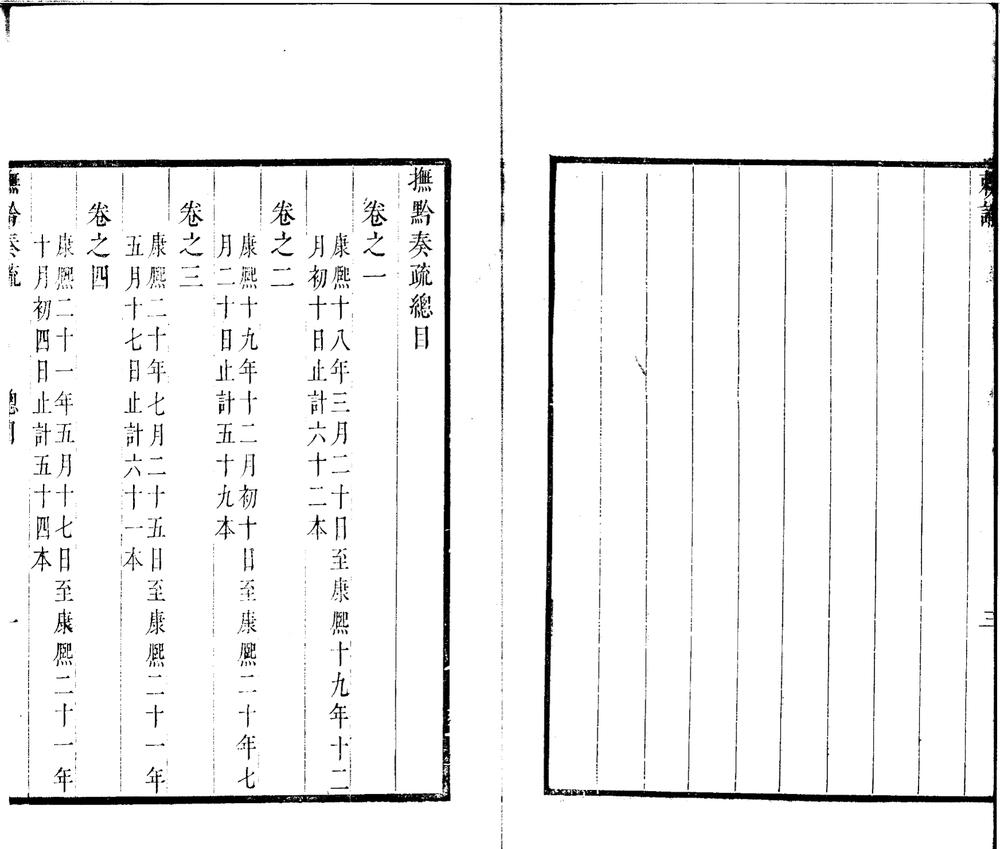 三
撫黔奏疏總目
卷之一
康熙十八年三月二十日至康熙十九年十二
月初十日止計六十二本
卷之二
康熙十九年十二月初十日至康熙二十年七
月二十日止計五十九本
卷之三
康熙二十年七月二十五日至康熙二十一年
五月十七日止計六十一本
卷之四
康熙二十一年五月十七日至康熙二十一年
十月初四日止計五十四本
撫黔奏疏 總目 一